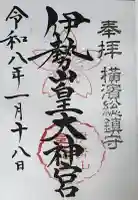 奉拝
横濱総鎮守
伊勢山皇大神宮
令和八年一月十八日